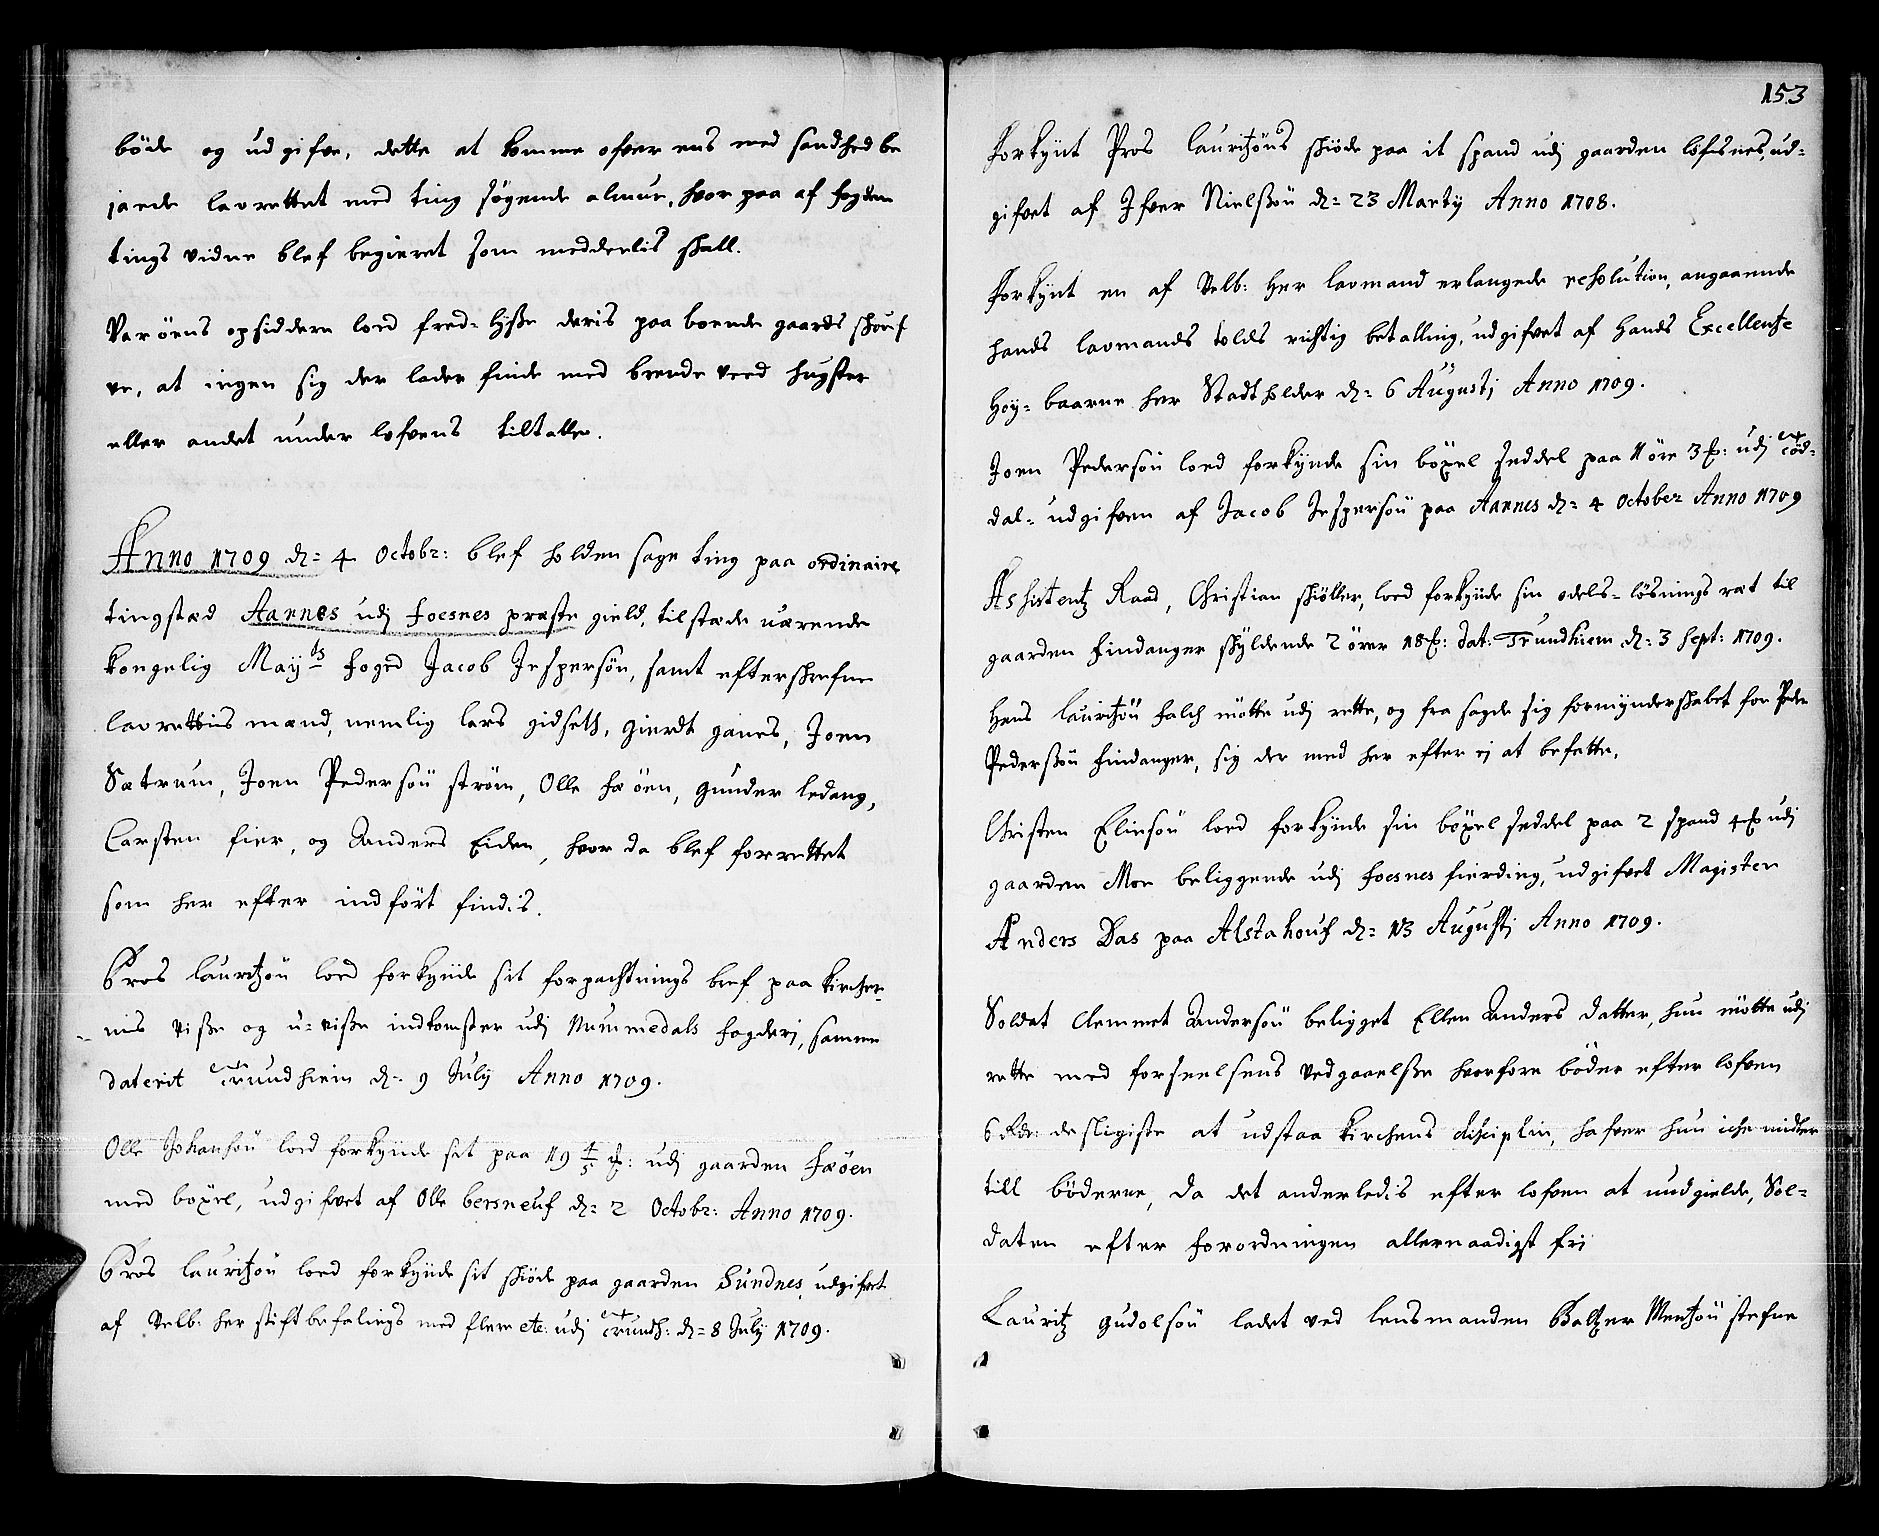 böde og udgifve, dette at komme ofver ens med sandhed be
jaede lavrettet med ting søgende almue, hvor paa af fogden
tings vidne blef begieret som meddeelis skall.
Varöens opsiddere loed fred-lysse deris paa boende gaards skouf
ve, at ingen sig der lader finde med brende veed hugster
eller andet under lofvens tiltalle.
Anno 1709 d: 4 Octobr: blef holden sage ting paa ordinaire
tingstæd Aarnes udj foesnes præste gield, tilstæde værende
kongelig Mayts foged Jacob Jespersön, samt efterskrefne
lavrettis mænd, nemlig lars gidseth, gierdt ganes, Joen
Sætrum, Joen Pedersön ström, Olle fæöen, gunder ledang,
Carsten fier, og Anders Eiden, hvor da blef forrettet
som her efter indfört findis.
Bros lauritzön loed forkynde sit forpachtnings bref paa kircher-
nis visse og u-visse indkomster udj Nummedals fogderj, samme
daterit Trundhiem d: 9 July Anno 1709.
Olle Johansön loed forkynde sit paa 19 4/5 : udj gaarden fæöen
med boxel, udgifvet af Olle bersneuf d: 2 Octobr: Anno 1709.
Bros lauritzön loed forkynde sit skiöde paa gaarden Sundnes, udgifvet
af Velb: her stiftbefalings med flere etc: udj Trundh: d: 8 July 1709.
153
Forkynt Pros lauritzöns skiöde paa it spand udj gaarden löfsnes, ud-
gifvet af Ifver Nielssön d: 23 Marty Anno 1708.
Forkynt en af Velb: Her lavmand erlangede resolution, angaaende
hands lavmands tolds richtig betalling, udgifvet af hands Excellentze
Höy-baarne her Stadtholder d: 6 Augustj Anno 1709.
Joen Pedersön loed forkynde sin böxel seddel paa 1 öre 3 : udj Död-
dal- udgifven af Jacob Jespersön paa Aarnes d: 4 October Anno 1709
Assistentz Raad, Christian skiöller, loed forkynde sin odels-lösnings ræt til
gaarden Findanger skyldende 2 örer 18 : dat: Trundhiem d: 3 Sept: 1709.
Hans lauritzön falch mötte udj rette, og fra sagde sig formynderskabet for Peder
Pederssön Findanger, sig der med her efter ej at befatte.
Christen Elinsön loed forkynde sin böxel seddel paa 2 spand 4 udj
gaarden Moe beliggende udj foesnes fierding, udgifvet Magister
Anders Das paa Alstahouf d: 13 Augustj Anno 1709.
Soldat Clemmet Andersön beligget Ellen Anders datter, hun mötte udj
rette med forseelsens vedgaaelsse hvorfore böder efter lofven
6 Rdr: desligiste at udstaa kirchens disciplin, hafver hun iche midler
till böderne, da det anderledis efter lofven at undgielde, Sol-
daten efter forordningen allernaadigst fri
Lauritz gudolsön ladet ved lensmanden Baltzer Mentzön stefne